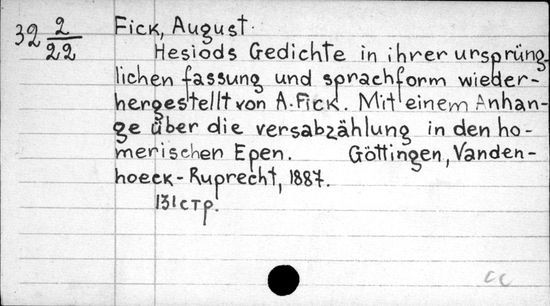 32 2/22 Fick, August.
Hesiods Gedichte in ihrer ursprüng-
lichen fassung und sprachform wieder-
hergestellt von A. Fick. Mit einem Anhan-
ge über die versabzählung in den ho-
merischen Epen. Göttingen, Vanden-
hoeck-Ruprecht, 1887.
131 стр.
CC